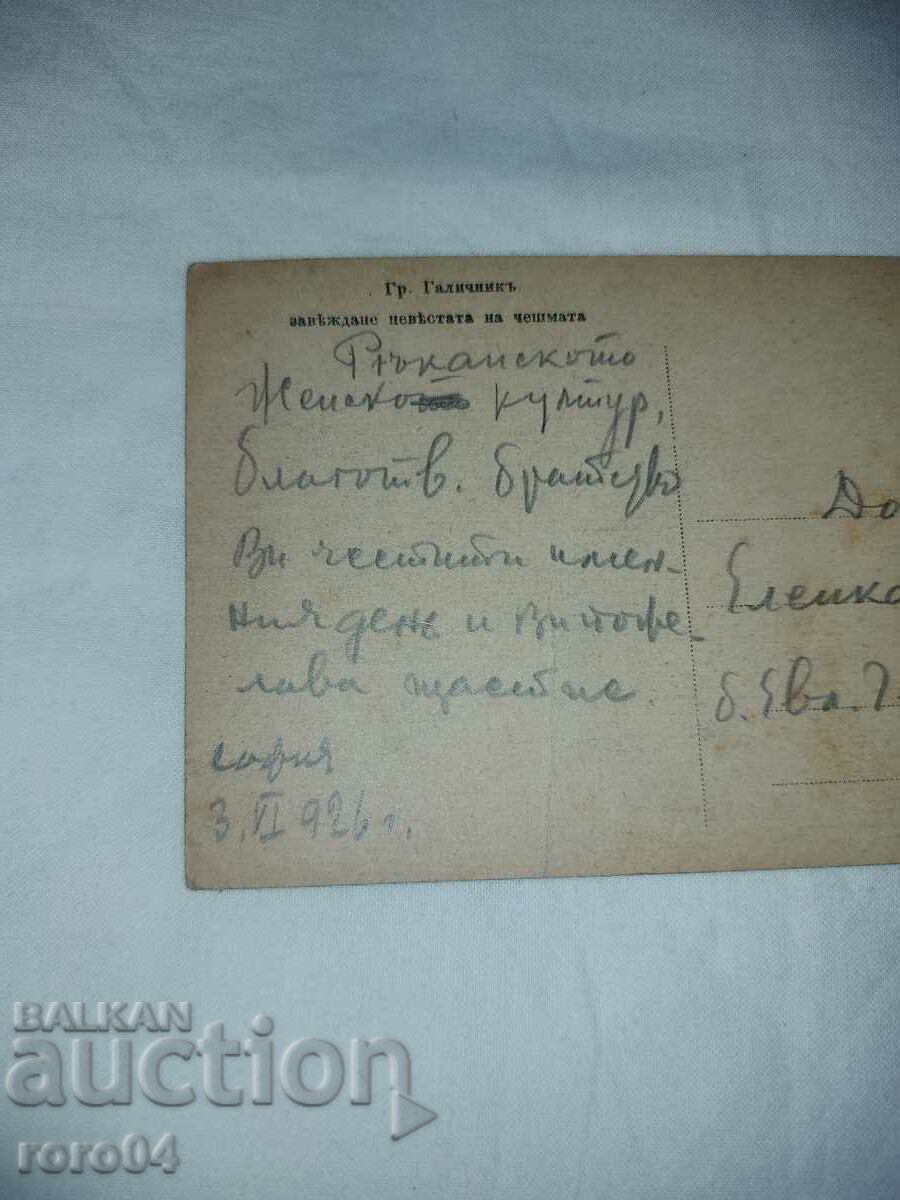 Гр. Галичникъ
завѣждане невѣстата на чешмата
Женско култур,
благотв. братство
Ви честити имен-
ния день и Ви поже-
лава щастие.
София
3.VI 926 г.
До
Еленка
б. Евл.
BALKAN
auction
roro04